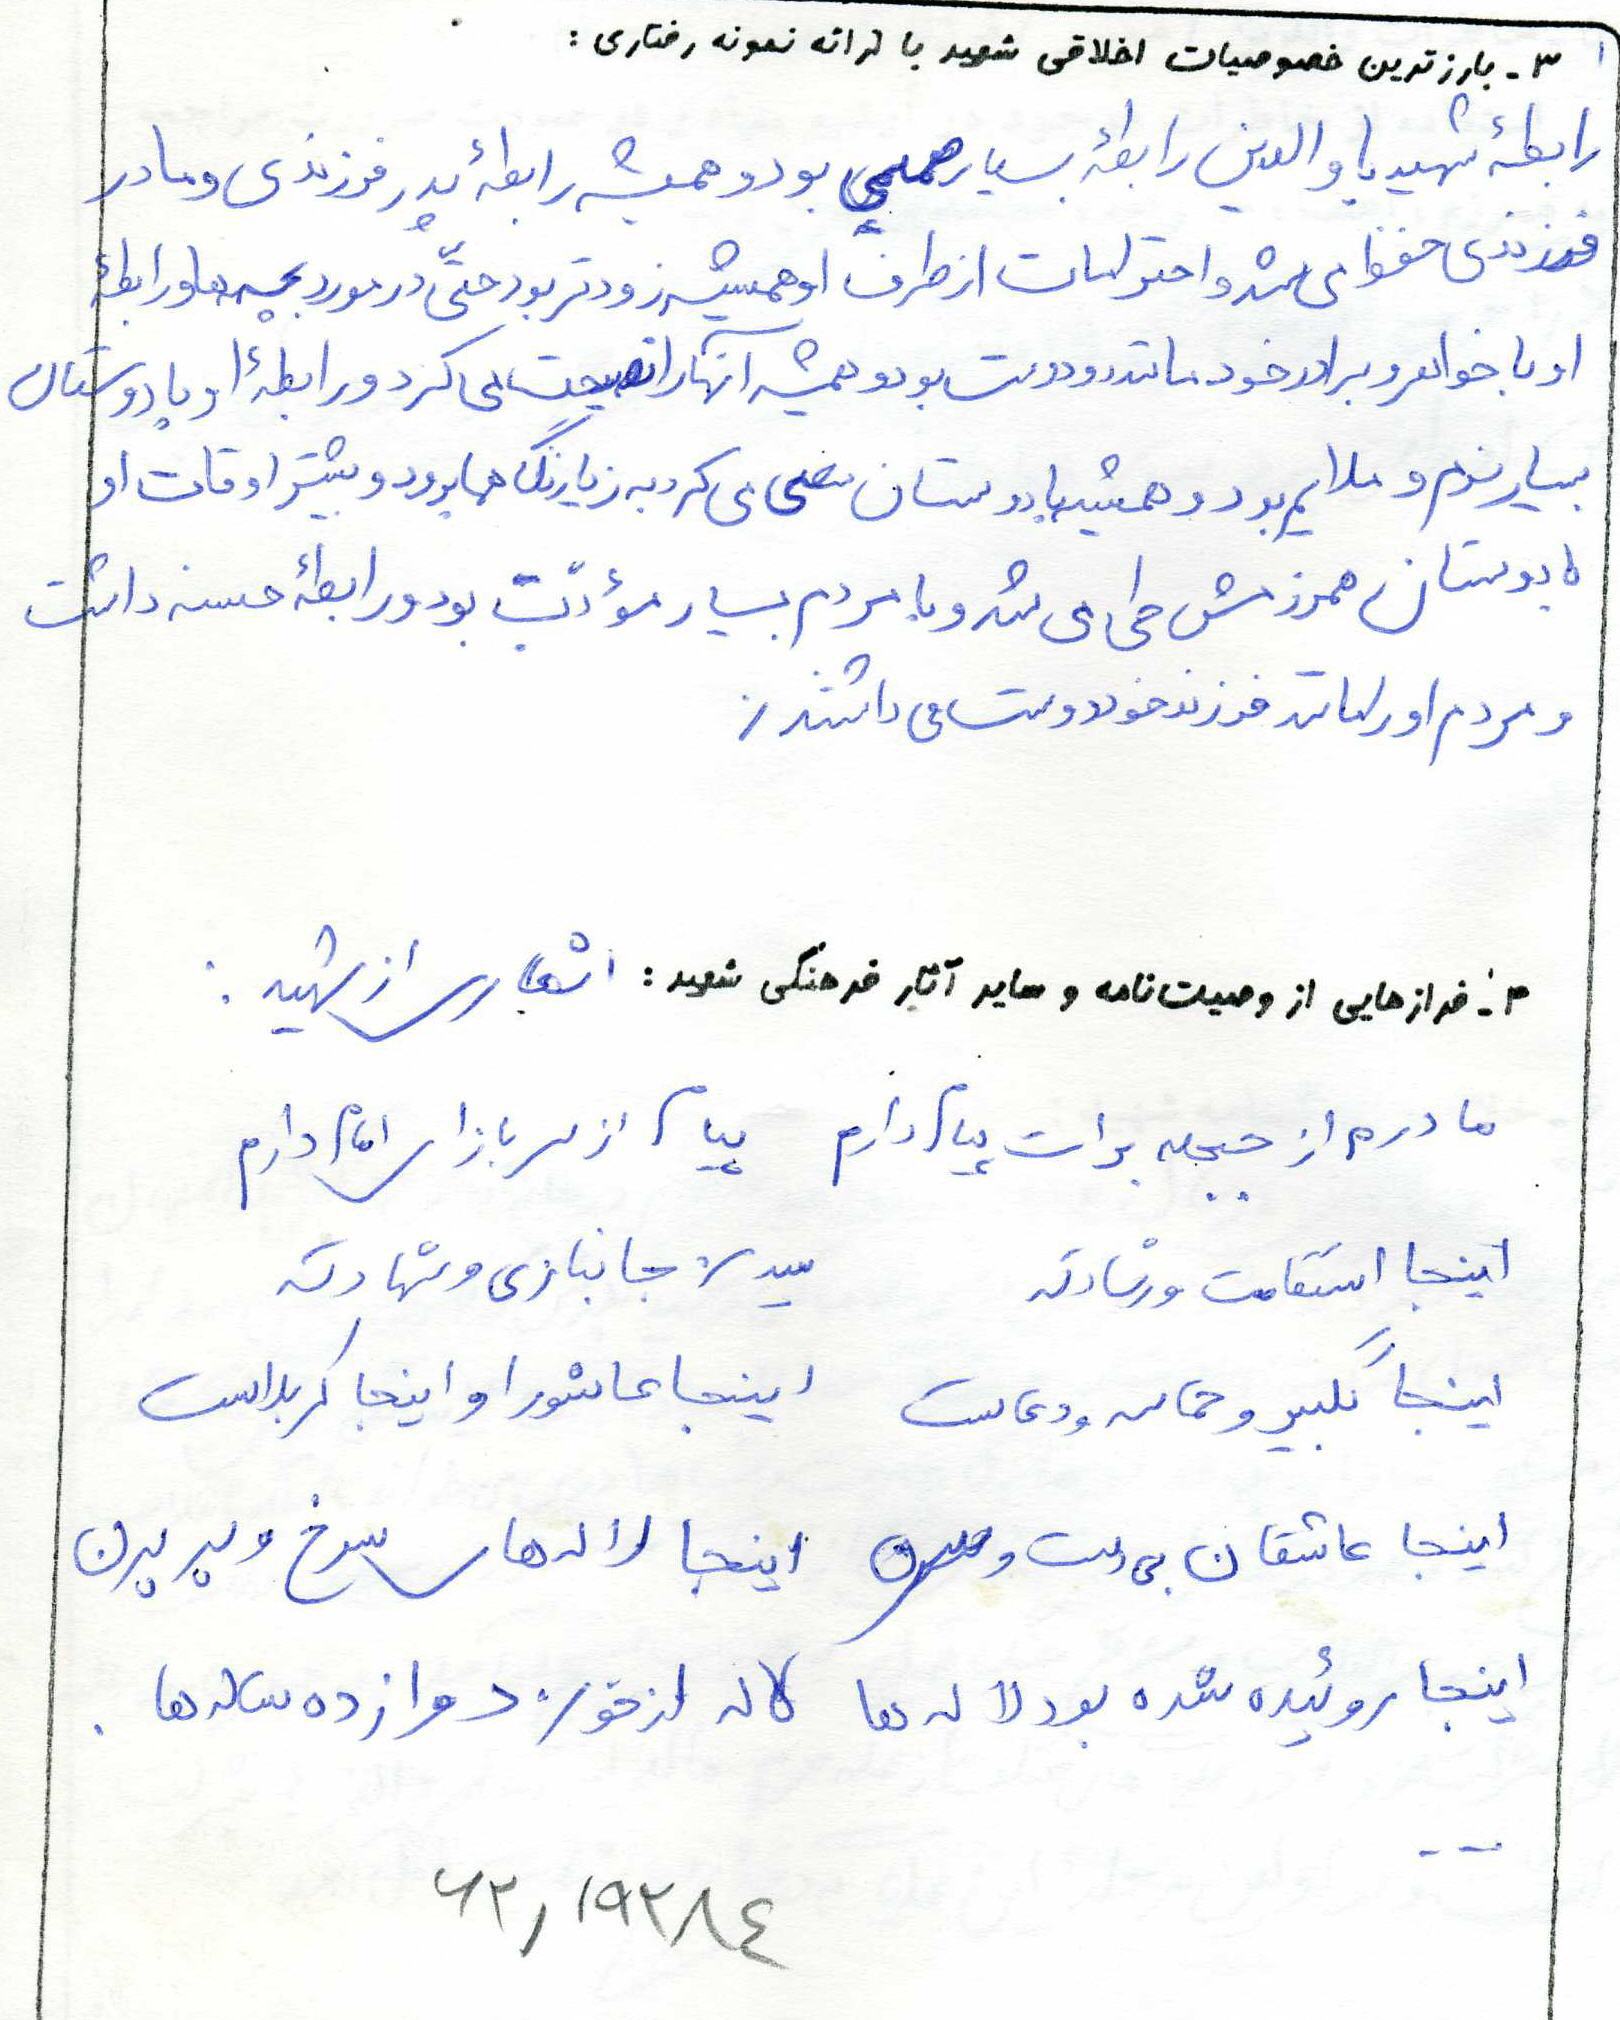 ۳- بارزترین خصوصیات اخلاقی شهید با ارائه نمونه رفتاری :
رابطهٔ شهید با والدین رابطهٔ بسیار صمیمی بود و همیشه رابطهٔ پدر فرزندی و مادر
فرزندی حفظ می شد و احترامات از طرف او همیشه زودتر بود حتّی در مورد بچه ها و رابطهٔ
او با خواهر و برادر خود مانند دوست بود و همیشه آنها را نصیحت می کرد و رابطهٔ او با دوستان
بسیار نرم و ملایم بود و همیشه با دوستان سعی می کرد به زیارتگاهها برود و بیشتر اوقات او
با دوستان همرزمش طی می شد و با مردم بسیار مؤدّب بود و رابطهٔ حسنه داشت
و مردم او را مانند فرزند خود دوست می داشتند
۴- فرازهایی از وصیت‌نامه و سایر آثار فرهنگی شهید : اشعاری از شهید :
مادرم از جبهه برات پیام دارم پیام از سربازای امام دارم
اینجا استقامت و رشادته میدان جانبازی و شهادته
اینجا تکبیر و حماسه و دعاست اینجا عاشورا و اینجا کربلاست
اینجا عاشقان بی دست و سرن اینجا لاله های سرخ و پرپرن
اینجا روئیده شده بود لاله ها لاله از خون دوازده ساله ها .
--
۶۲۱۱۹۲۸۴